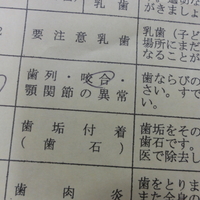 乳歯
がきまし
2 要注意乳歯
乳歯(子ど
場所にまだ
歯列・咬合・
顎関節の異常
歯ならびの
さい。すで
い。
歯垢付着
(歯石)
歯垢をその
歯石です。
医で除去し
歯肉炎
歯をとりま